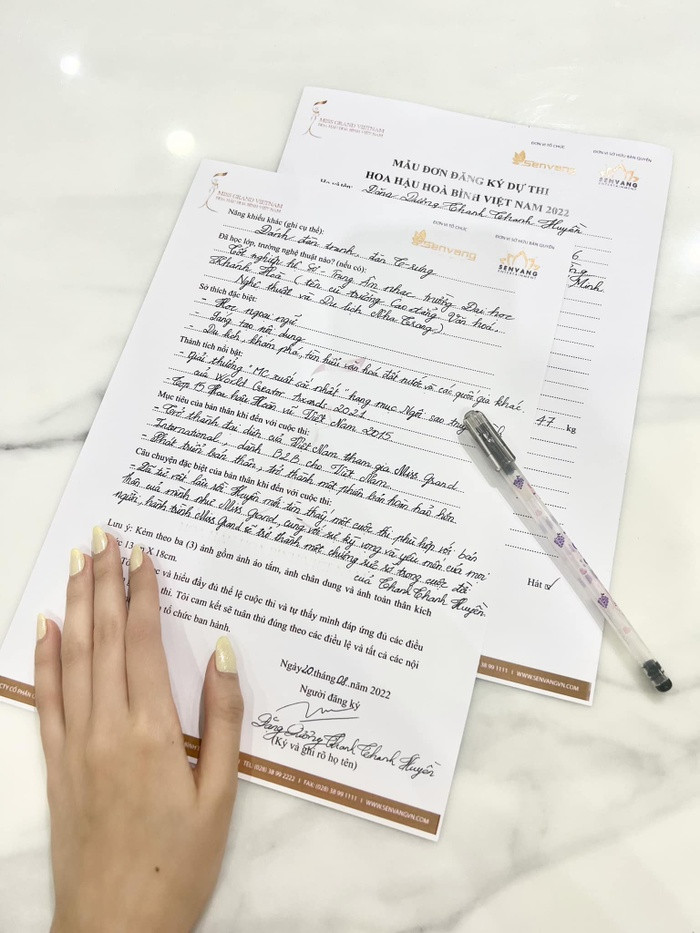 MISS GRAND VIETNAM
HOA HẬU HOÀ BÌNH VIỆT NAM
ĐƠN VỊ TỔ CHỨC
ĐƠN VỊ SỞ HỮU BẢN QUYỀN
Senvang
SENVANG
MẪU ĐƠN ĐĂNG KÝ DỰ THI
HOA HẬU HOÀ BÌNH VIỆT NAM 2022
Họ và tên: Đặng Dương Thanh Thanh Huyền
6
Minh
47 kg
Hát
38 99 1111 | WWW.SENVANGVN.COM
MISS GRAND VIETNAM
HOA HẬU HOÀ BÌNH VIỆT NAM
ĐƠN VỊ TỔ CHỨC
ĐƠN VỊ SỞ HỮU BẢN QUYỀN
Senvang
SENVANG
Năng khiếu khác (ghi cụ thể):
Đánh đàn tranh, đàn T'rưng
Đã học lớp, trường nghệ thuật nào? (nếu có):
Tốt nghiệp hệ Sơ - Trung Âm nhạc trường Đại học
Khánh Hoà (tên cũ trường Cao đẳng Văn hoá
Nghệ thuật và Du lịch Nha Trang)
Sở thích đặc biệt:
- Học ngoại ngữ
- Sáng tạo nội dung
- Du lịch, khám phá, tìm hiểu văn hoá đất nước và các quốc gia khác
Thành tích nổi bật:
- Giải thưởng "MC xuất sắc nhất" hạng mục Ngôi sao
của World Creator Awards 2021
- Top 15 Hoa hậu Hoàn vũ Việt Nam 2015
Mục tiêu của bản thân khi đến với cuộc thi:
- Trở thành đại diện của Việt Nam tham gia Miss Grand
International, dành B2B cho Việt Nam
- Phát triển bản thân, trở thành một phiên bản hoàn hảo hơn
Câu chuyện đặc biệt của bản thân khi đến với cuộc thi:
- Đã từ rất lâu rồi Huyền mới tìm thấy một cuộc thi phù hợp với bản
thân của mình như Miss Grand, cùng với sự kỳ vọng và yêu mến của mọi
người, hành trình Miss Grand sẽ trở thành một chương rực rỡ trong cuộc đời
của Thanh Thanh Huyền
Lưu ý: Kèm theo ba (3) ảnh gồm ảnh áo tắm, ảnh chân dung và ảnh toàn thân kích
13 cm X 18cm.
và hiểu đầy đủ thể lệ cuộc thi và tự thấy mình đáp ứng đủ các điều
thi. Tôi cam kết sẽ tuân thủ đúng theo các điều lệ và tất cả các nội
tổ chức ban hành.
Ngày 20 tháng 08 năm 2022
Người đăng ký
Đặng Dương Thanh Thanh Huyền
(Ký và ghi rõ họ tên)
CTY CỔ PHẦN
TEL: (028) 38 99 2222 | FAX: (028) 38 99 1111 | WWW.SENVANGVN.COM